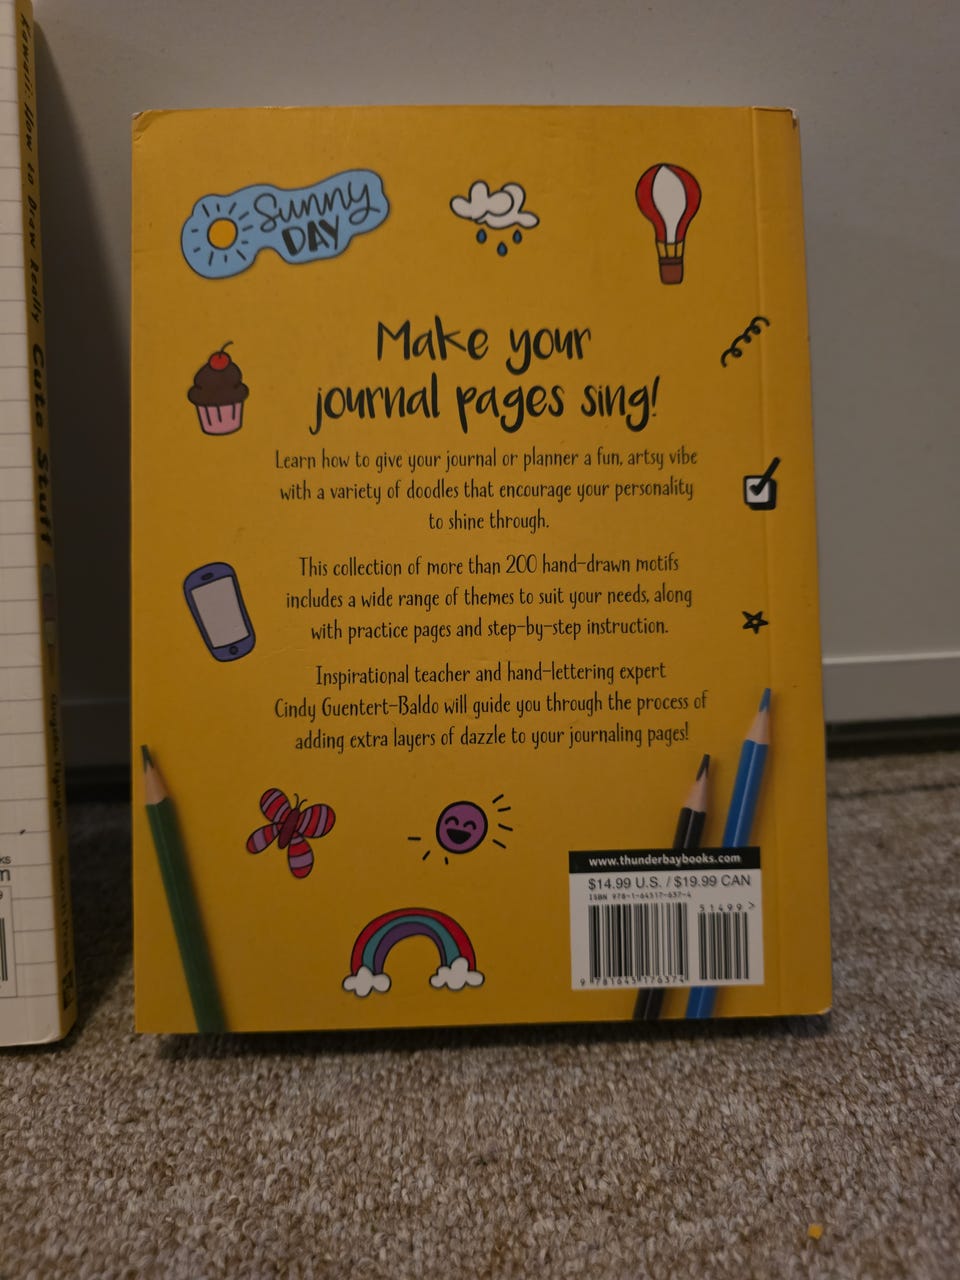 Kawaii: How to Draw Really Cute Stuff
Sunny
DAY
Make your
journal pages sing!
Learn how to give your journal or planner a fun, artsy vibe
with a variety of doodles that encourage your personality
to shine through.
This collection of more than 200 hand-drawn motifs
includes a wide range of themes to suit your needs, along
with practice pages and step-by-step instruction.
Inspirational teacher and hand-lettering expert
Cindy Guentert-Baldo will guide you through the process of
adding extra layers of dazzle to your journaling pages!
www.thunderbaybooks.com
$14.99 U.S. / $19.99 CAN
ISBN 978-1-64517-637-4
51499>
9 781645 176374